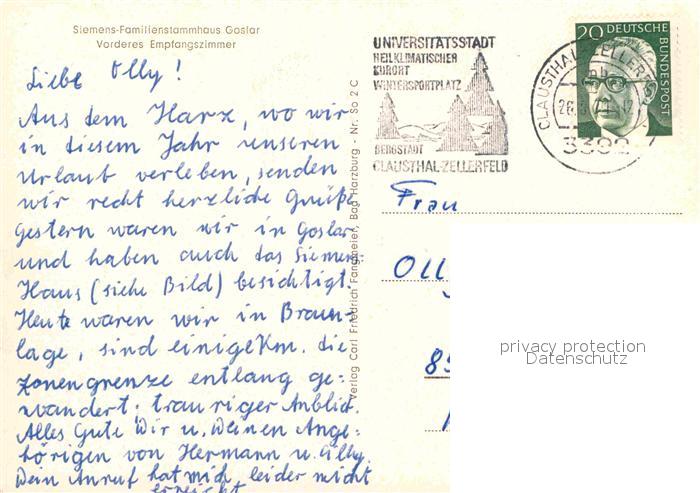 Siemens-Familienstammhaus Goslar
Vorderes Empfangszimmer
Liebe Olly!
Aus dem Harz, wo wir
in diesem Jahr unseren
Urlaub verleben, senden
wir recht herzliche Grüße.
Gestern waren wir in Goslar
und haben auch das Siemens-
Haus (siehe Bild) besichtigt.
Heute waren wir in Braun-
lage, sind einige Km. die
Zonengrenze entlang ge-
wandert; trauriger Anblick.
Alles Gute Dir u. Deinen Ange-
hörigen von Hermann u. Cilly.
Dein Anruf hat mich leider nicht
erreicht
Verlag Carl Friedrich Fangmeier, Bad Harzburg - Nr. So 2 C
UNIVERSITÄTSSTADT
HEILKLIMATISCHER
KURORT
WINTERSPORTPLATZ
BERGSTADT
CLAUSTHAL-ZELLERFELD
CLAUSTHAL-ZELLERF
3392
20 DEUTSCHE
BUNDESPOST
Frau
Oll
85
privacy protection
Datenschutz